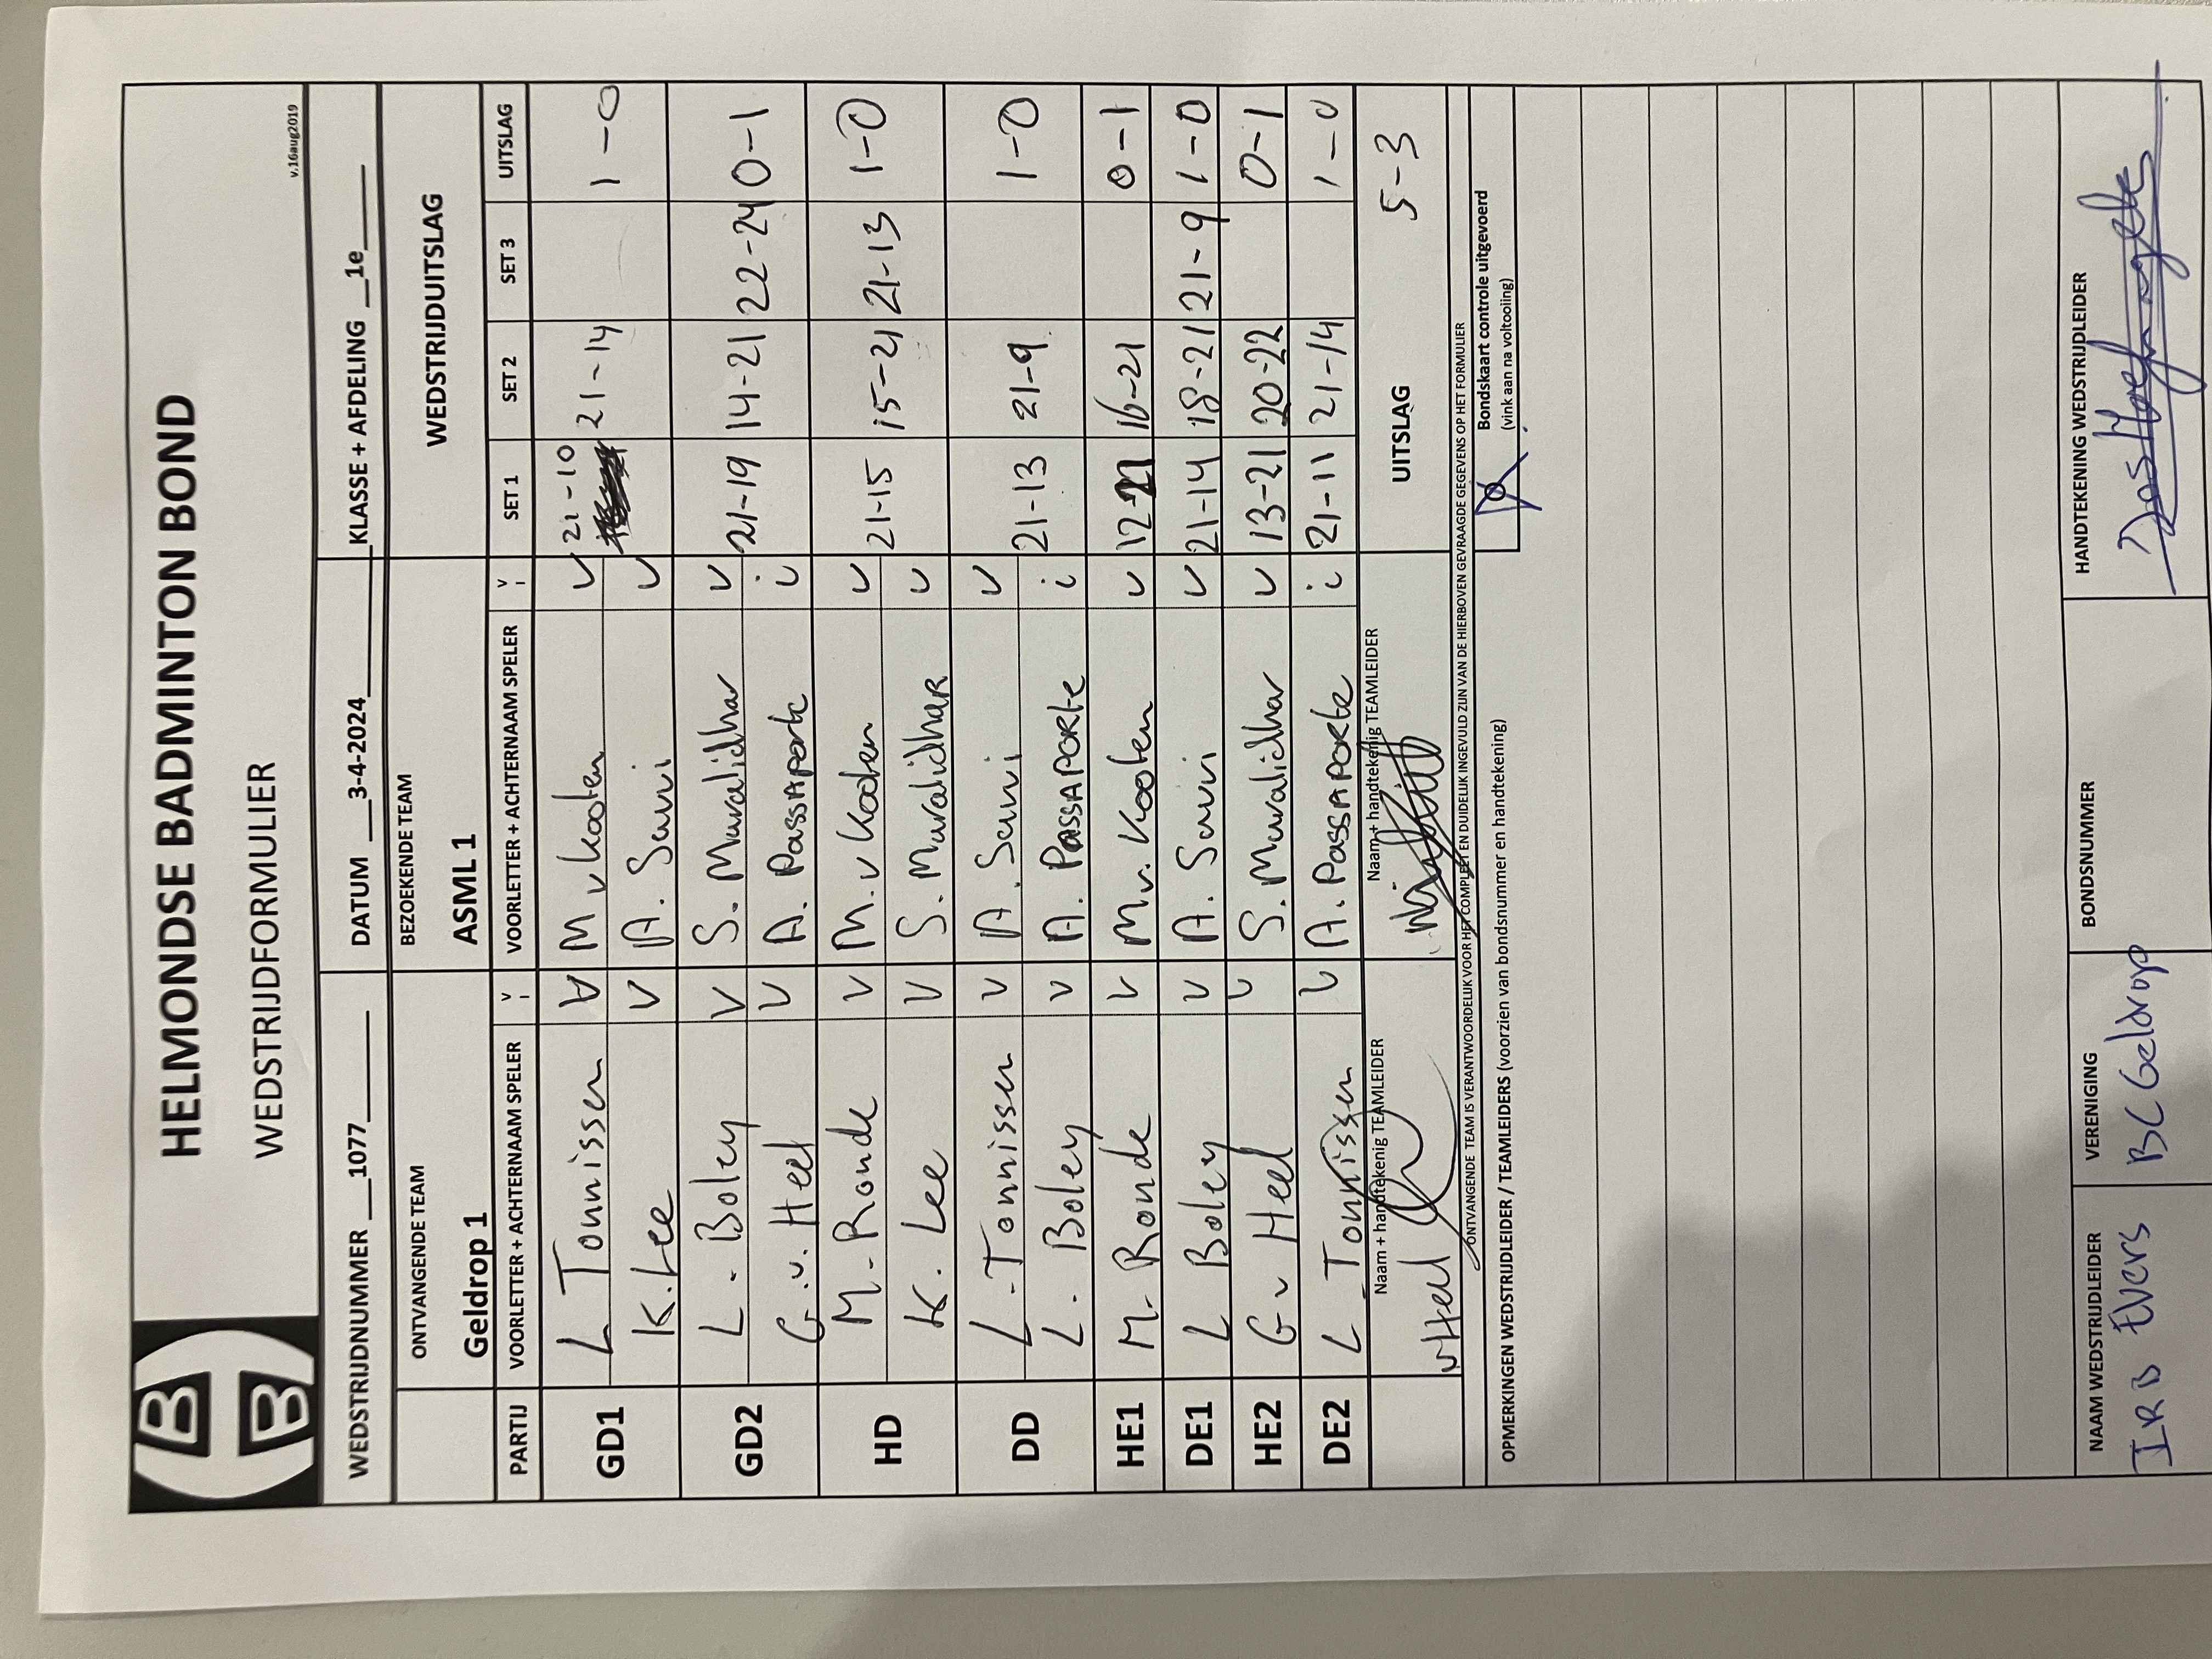 HELMONDSE BADMINTON BOND
WEDSTRIJDFORMULIER
v.16aug2019
WEDSTRIJDNUMMER __1077____ DATUM __3-4-2024______ KLASSE + AFDELING __1e____
ONTVANGENDE TEAM BEZOEKENDE TEAM WEDSTRIJDUITSLAG
Geldrop 1 ASML 1
PARTIJ VOORLETTER + ACHTERNAAM SPELER V I VOORLETTER + ACHTERNAAM SPELER V I SET 1 SET 2 SET 3 UITSLAG
GD1 L Tonnissen V M v Kooten V 21-10 21-14 1-0
K. Lee V A. Savvi V
GD2 L. Boley V S. Muralidhar V 21-19 14-21 22-24 0-1
G. v. Heel V A. Passaporte i
HD M. Ronde V M. v Kooten V 21-15 15-21 21-13 1-0
K. Lee V S. Muralidhar V
DD L. Tonnissen V A. Savvi V 21-13 21-9 1-0
L. Boley V A. Passaporte i
HE1 M. Ronde V M v. Kooten V 12-21 16-21 0-1
DE1 L Boley V A. Savvi V 21-14 18-21 21-9 1-0
HE2 G v Heel V S. Muralidhar V 13-21 20-22 0-1
DE2 L Tonnissen V A. Passaporte i 21-11 21-14 1-0
Naam + handtekenig TEAMLEIDER Naam + handtekenig TEAMLEIDER UITSLAG 5-3
v Heel
ONTVANGENDE TEAM IS VERANTWOORDELIJK VOOR HET COMPLEET EN DUIDELIJK INGEVULD ZIJN VAN DE HIERBOVEN GEVRAAGDE GEGEVENS OP HET FORMULIER
OPMERKINGEN WEDSTRIJDLEIDER / TEAMLEIDERS (voorzien van bondsnummer en handtekening)
Bondskaart controle uitgevoerd
(vink aan na voltooiing)
NAAM WEDSTRIJDLEIDER VERENIGING BONDSNUMMER HANDTEKENING WEDSTRIJDLEIDER
Evers BC Geldrop